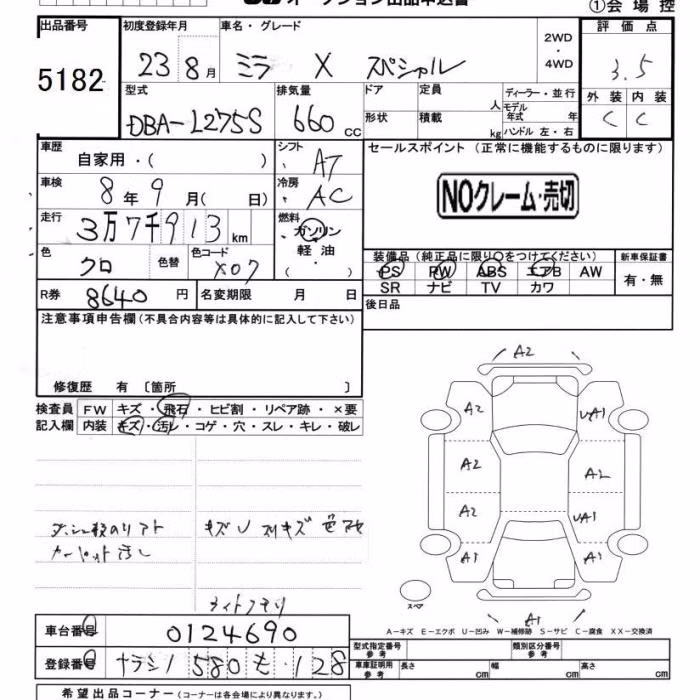 オークション出品申込書
①会場控
出品番号
5182
初度登録年月
23 8月
車名・グレード
ミラ X スペシャル
2WD
・
4WD
評価点
3.5
型式
DBA-L275S
排気量
660 CC
ドア
定員
人
ディーラー・並行
モデル年式 年
形状
積載
kg
ハンドル 左・右
外装 内装
C C
車歴
自家用・( )
シフト
AT
セールスポイント (正常に機能するものに限ります)
車検
8年9月( 日)
冷房
AC
NOクレーム・売切
走行
3万7千913km
燃料
ガソリン
軽油
・( )
色
クロ
色替
色コード
X07
装備品(純正品に限り○をつけてください)
PS PW ABS エアB AW
SR ナビ TV カワ
新車保証書
有・無
R券
8640円
名変期限 月 日
後日品
注意事項申告欄(不具合内容等は具体的に記入して下さい)
修復歴 有 〔箇所 〕
検査員
記入欄
FW キズ・飛石・ヒビ割・リペア跡・×要
内装 キズ・汚レ・コゲ・穴・スレ・キレ・破レ
カーペット汚レ
ライトクモリ
A2
A2 UA1
A2 A2
A2 UA1
A1 A1
A1
スペア
A-キズ E-エクボ U-凹み W-補修跡 S-サビ C-腐食 XX-交換済
車台番号
0124690
登録番号
ナラシノ 580 も ・128
型式指定番号
参考
類別区分番号
参考
車庫証明用
参考
長さ cm 幅 cm 高さ cm
希望出品コーナー(コーナーは各会場により異なります。)